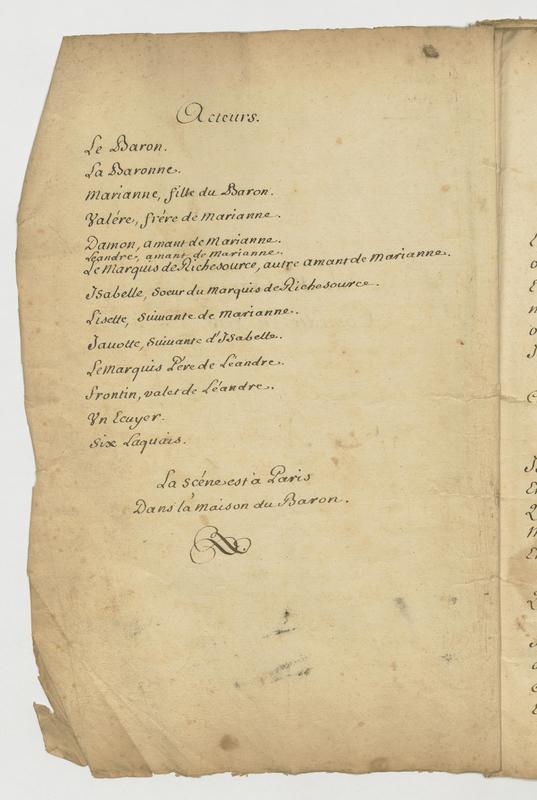 Acteurs.
Le Baron.
La Baronne.
Marianne, fille du Baron.
Valére, frére de Marianne.
Damon, amant de Marianne.
Léandre, amant de Marianne.
Le Marquis de Richesource, autre amant de Marianne.
Isabelle, Soeur du Marquis de Richesource.
Lisette, Suivante de Marianne.
Javotte, Suivante d'Isabelle.
Le Marquis Pére de Léandre.
Frontin, valet de Léandre.
Vn Ecuyer.
Six Laquais.
La Scéne est à Paris
Dans la maison du Baron.